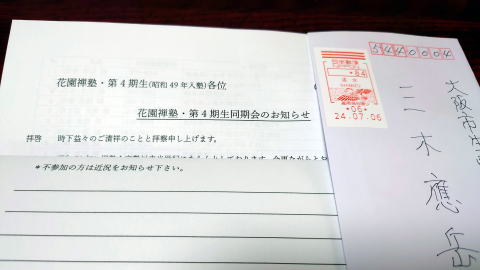 花園禅塾・第4期生(昭和49年入塾)各位
花園禅塾・第4期生同期会のお知らせ
拝啓 時下益々のご清祥のことと拝察申し上げます。
*不参加の方は近況をお知らせ下さい。
日本郵便
84
24.07.06
5440004
大阪市
三木應岳